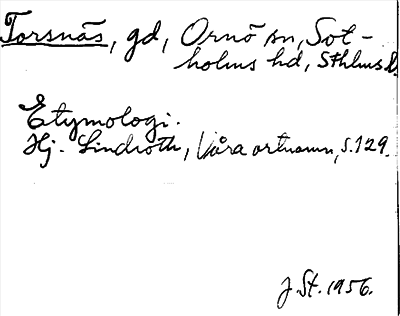 Torsnäs, gd, Ornö sn, Sot-
holms hd, Sthlms l.
Etymologi.
Hj. Lindroth, Våra ortnamn, s. 129.
J. St. 1956.